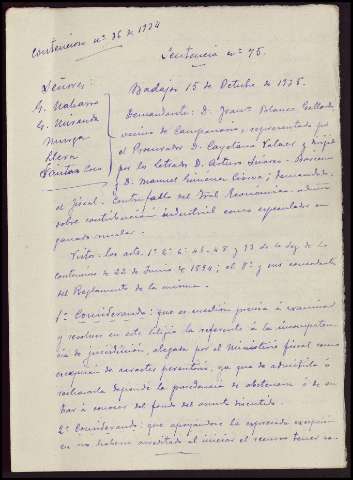 Contencioso nº 36 de 1924
Sentencia nº 75.
Señores:
G. Navarro
G. Miranda
Murga
Llera
Badajoz 15 de Octubre de 1925.
Demandante: D. Franco Blanco Gallardo,
vecino de Campanario, representado por
el Procurador D. Cayetano y dirigido
por los letrados D. Arturo Suarez-Bárcena
y D. Manuel Giménez Cierva; demandado,
el Fiscal. Contra fallo del Tral. Económico-admvo
sobre contribución industrial como especulador en
ganado mular.
Vistos: los arts. 1º 2º 4º 46-48 y 93 de la Ley de lo
contencioso de 22 de Junio de 1894; el 8º y sus concordantes
del Reglamento de la misma.
1º Considerando: que es cuestión previa á examinar
y resolver en este litigio la referente á la incompeten-
cia de jurisdicción, alegada por el Ministerio fiscal como
excepción de caracter perentorio, ya que de admitirla ó
rechazarla depende la procedencia de abstenerse ó de en-
trar á conocer del fondo del asunto discutido.
2º Considerando: que apoyandose la expresada excepción
en no haberse acreditado al iniciar el recurso tener sa-